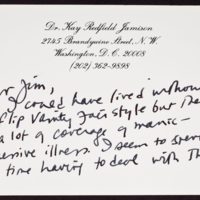 Dr. Kay Redfield Jamison
2745 Brandywine Street, N.W.
Washington, D.C. 20008
(202) 362-9898
r Jim,
I could have lived withou
clip Vanity Fair style but the
a lot of coverage of manic-
ressive illness. I seem to spen
time having to deal with th